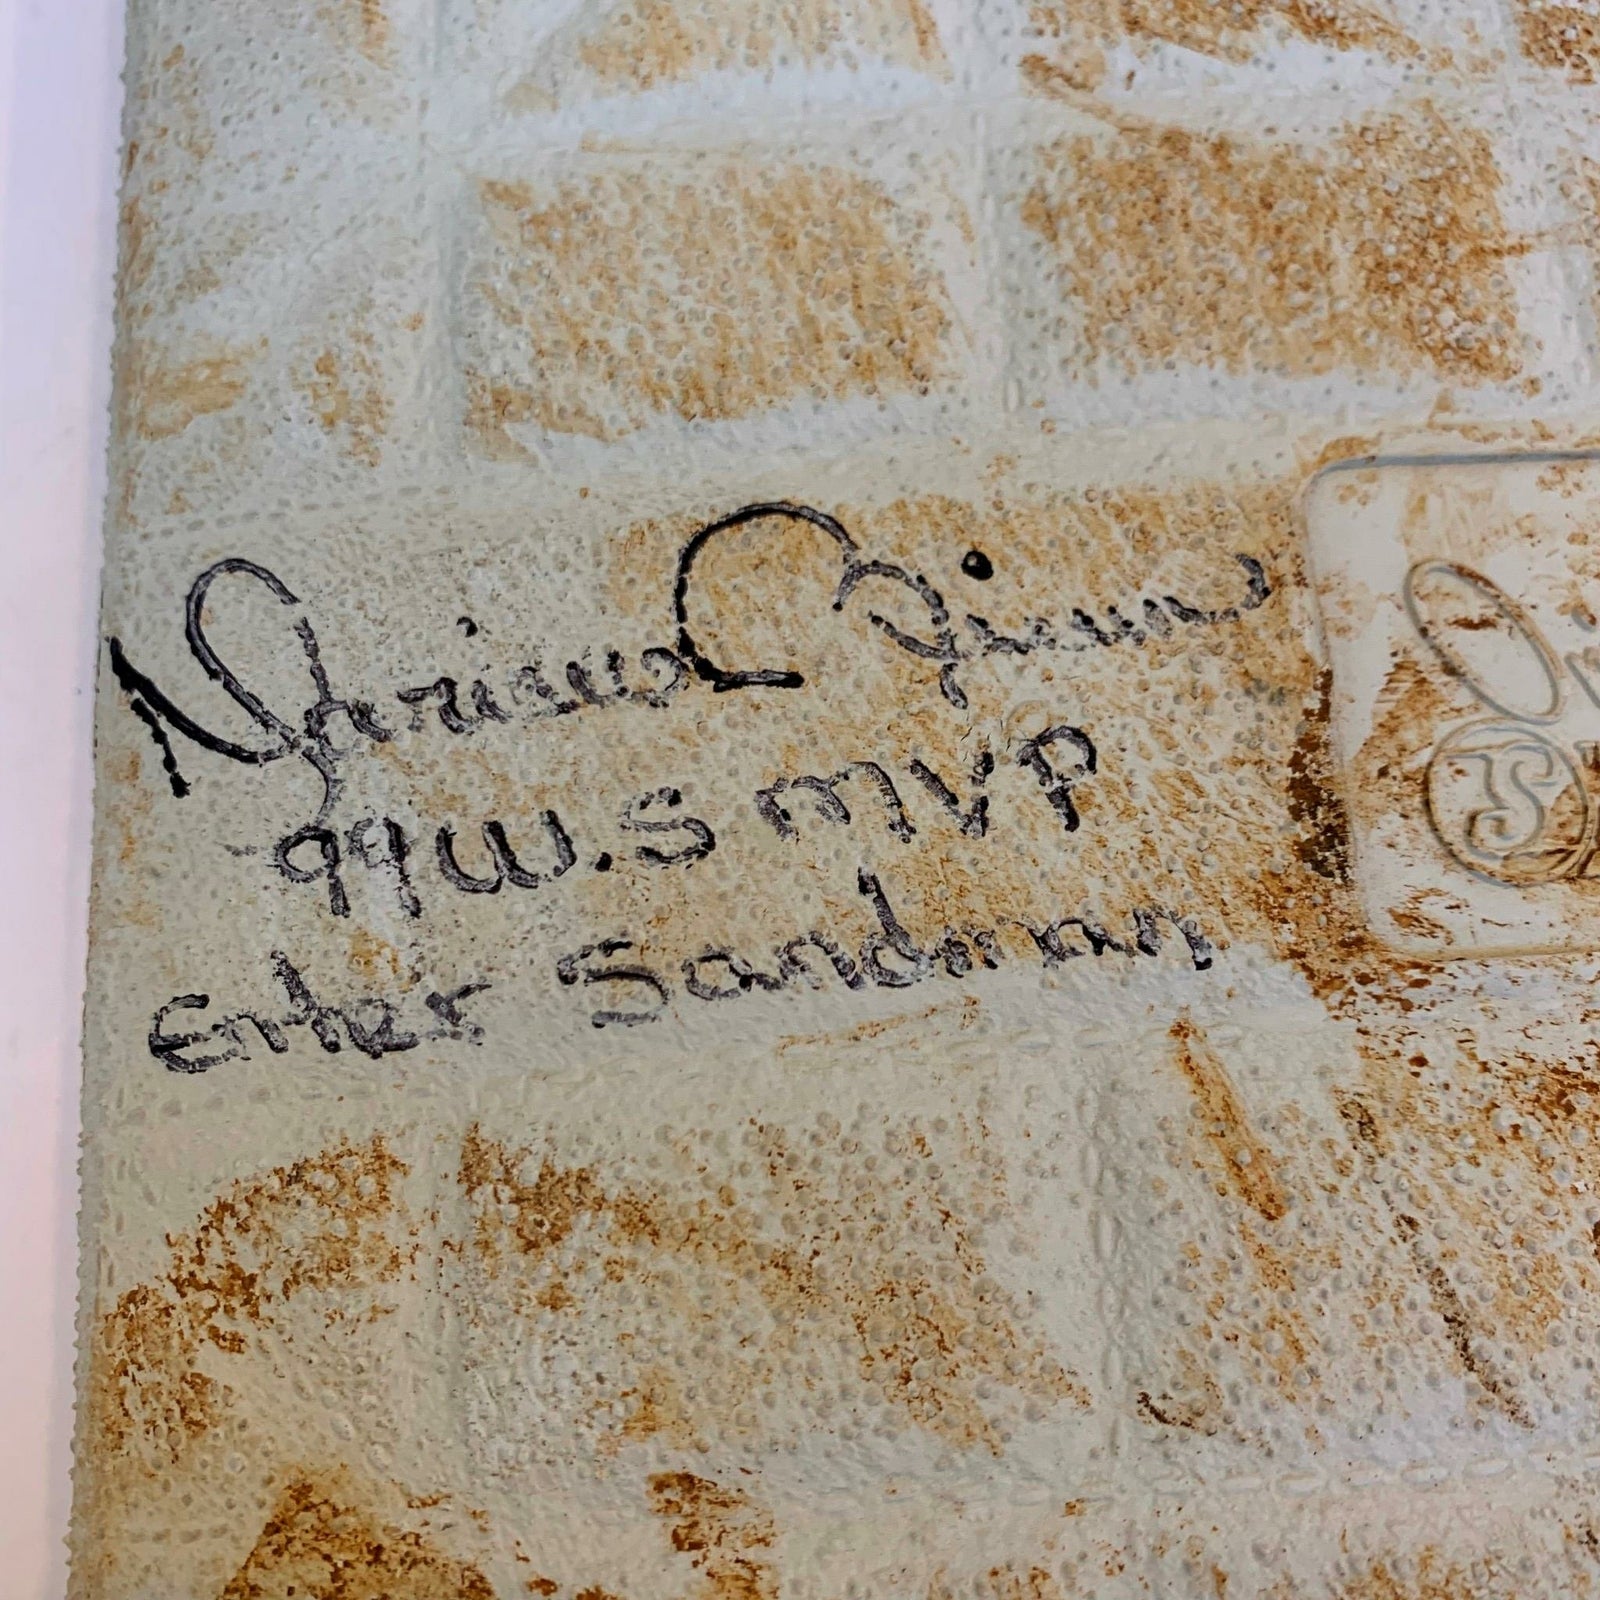 Mariano Rivera
99 W.S MVP
Enter Sandman